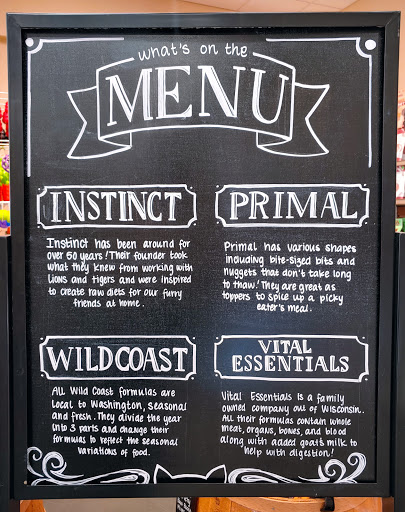 what's on the
MENU
INSTINCT
Instinct has been around for
over 50 years! Their founder took
what they knew from working with
lions and tigers and were inspired
to create raw diets for our furry
friends at home.
PRIMAL
Primal has various shapes
including bite-sized bits and
nuggets that don't take long
to thaw! They are great as
toppers to spice up a picky
eater's meal.
WILDCOAST
All Wild Coast formulas are
local to Washington, seasonal
and fresh. They divide the year
into 3 parts and change their
formulas to reflect the seasonal
variations of food.
VITAL
ESSENTIALS
Vital Essentials is a family
owned company out of Wisconsin.
All their formulas contain whole
meat, organs, bones, and blood
along with added goat's milk to
help with digestion!